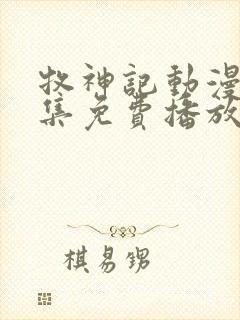 牧神記動漫
集免費播放
棋易甥